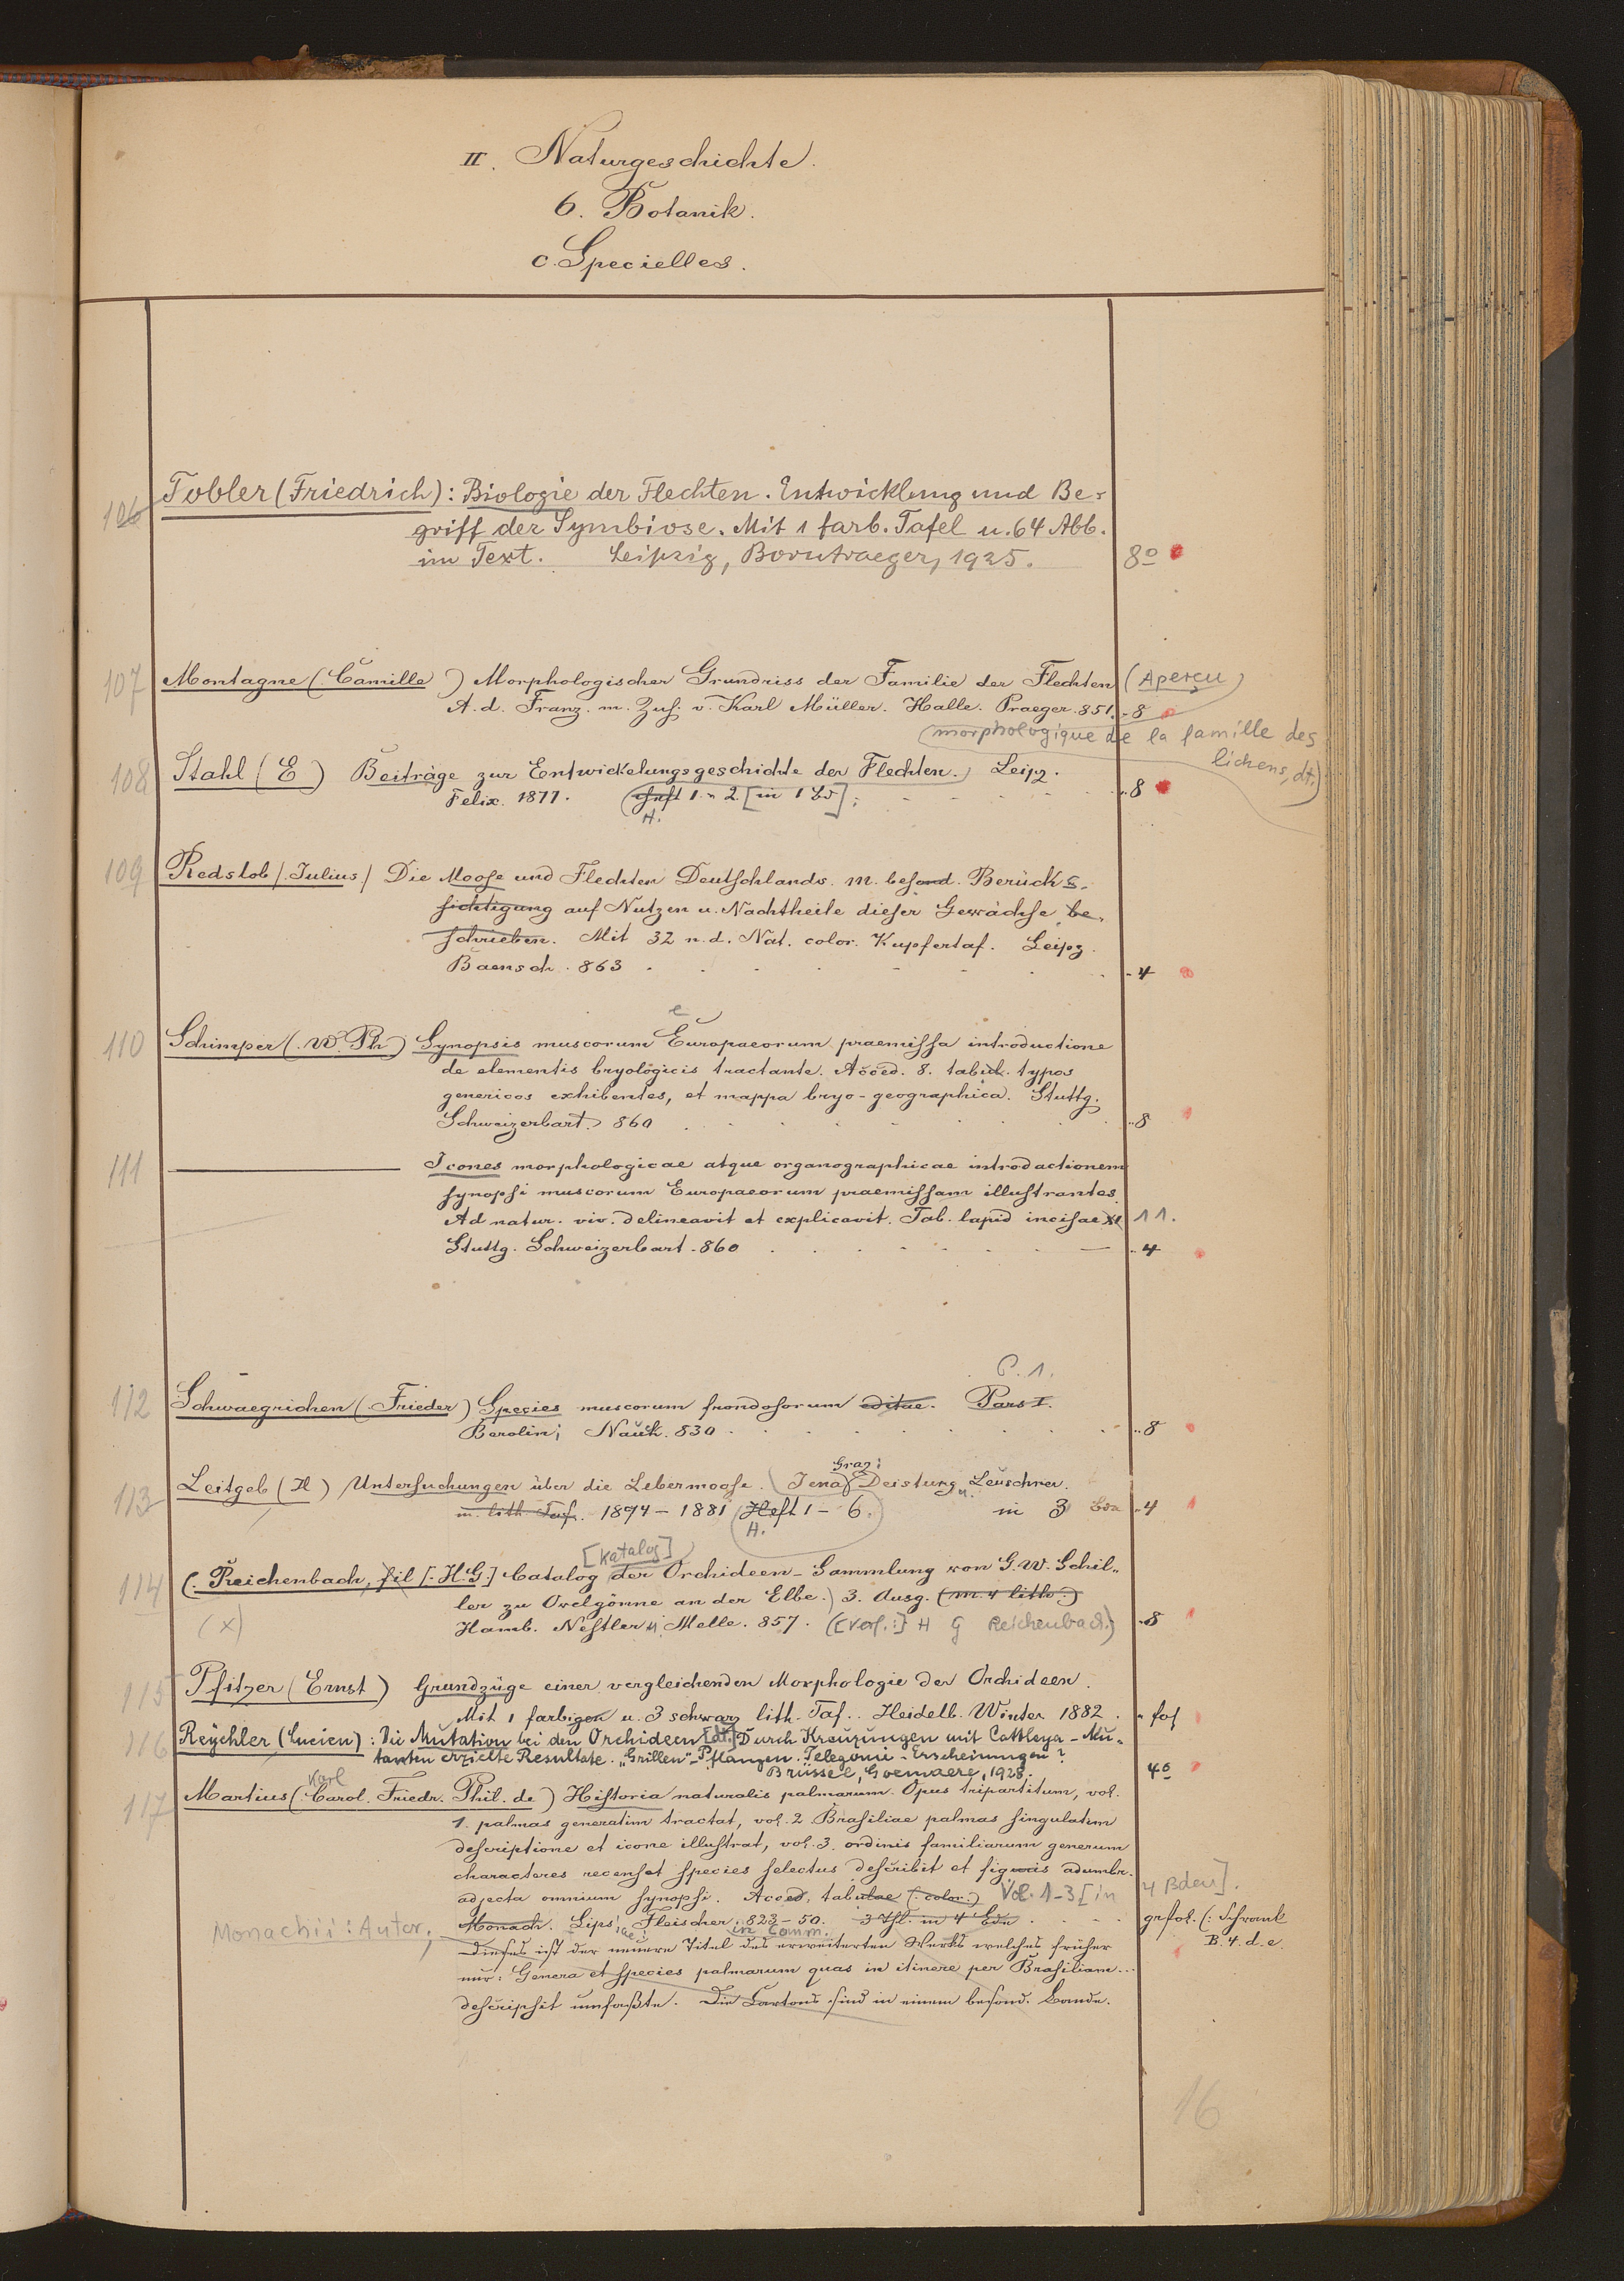 II. Naturgeschichte.
6. Botanik.
c. Specielles.
106 Tobler (Friedrich): Biologie der Flechten. Entwicklung und Be-
griff der Symbiose. Mit 1 farb. Tafel u. 64 Abb.
im Text. Leipzig, Borntraeger, 1925. 8º
107 Montagne (Camille) Morphologischer Grundriss der Familie der Flechten (Aperçu
A. d. Franz. m. Zus. v. Karl Müller. Halle. Praeger. 851. 8
morphologique de la famille des
lichens, dt.)
108 Stahl (E) Beiträge zur Entwickelungsgeschichte der Flechten. Leipz.
Felix. 1877. (Heft 1. u 2. [in 1 Bd]; 8
H.
109 Redslob (Julius) Die Moose und Flechten Deutschlands. m. besond. Berücks.
sichtigung auf Nutzen u. Nachtheile dieser Gewächse be-
schrieben. Mit 32 n. d. Nat. color. Kupfertaf. Leipz.
Baensch. 863 4
e
110 Schimper (W. Ph) Synopsis muscorum Europaeorum praemissa introductione
de elementis bryologicis tractante. Acced. 8. tabul. typos
genericos exhibentes, et mappa bryo-geographica. Stuttg.
Schweizerbart. 860 8
111 Icones morphologicae atque organographicae introductionem
synopsi muscorum Europaeorum praemissam illustrantes.
Ad natur. viv. delineavit et explicavit. Tab. lapid incisae XI 11.
Stuttg. Schweizerbart. 860 4
P. 1.
112 Schwaegrichen (Frieder) Species muscorum frondosorum editae. Pars I.
Berolin; Nauk. 830 8
Graz:
113 Leitgeb (H) Untersuchungen über die Lebermoose. (Jena) Deistung u. Leuschner.
m. lith. Taf. 1874 - 1881 (Heft 1 - 6. in 3 Bdn 4
H.
[Katalog]
114 (Reichenbach, fil [H.G.] Catalog der Orchideen-Sammlung von G. W. Schil-
ler zu Ovelgönne an der Elbe.) 3. Ausg. (m. 4 lith.)
(x) Hamb. Nestler u. Melle. 857. ([Verf.:] H G Reichenbach.) 8
115 Pfitzer (Ernst) Grundzüge einer vergleichenden Morphologie der Orchideen.
Mit 1 farbigen u. 3 schwarz lith. Taf. Heidelb. Winter 1882. fol
116 Reychler (Lucien): Die Mutation bei den Orchideen [dt.] Durch Kreuzungen mit Cattleya-Mu-
tanten erzielte Resultate. "Grillen"-Pflanzen. Telegonie-Erscheinungen?
Brüssel, Goemaere, 1928. 4º
Karl
117 Martius (Carol. Friedr. Phil. de) Historia naturalis palmarum. Opus tripartitum, vol.
1. palmas generatim tractat, vol. 2 Brasiliae palmas singulatim
descriptione et icone illustrat, vol. 3. ordinis familiarum generum
characteres recenset species selectus describit et figuris adumbr.
adjecta omnium synopsi. Acced. tabulae (color.) Vol. 1-3 [in 4 Bden].
Monachii: Autor; Monach. Lips; Fleischer. 823-50. 3 Thl. in 4 Bdn grfol. (: Schrank
in Comm. B. 4. d. e.
Dieses ist der neuere Titel des erweiterten Werks welches früher
nur: Genera et species palmarum quas in itinere per Brasiliam...
descripsit umfaßte. Die Cartons sind in einem besond. Bande.
16